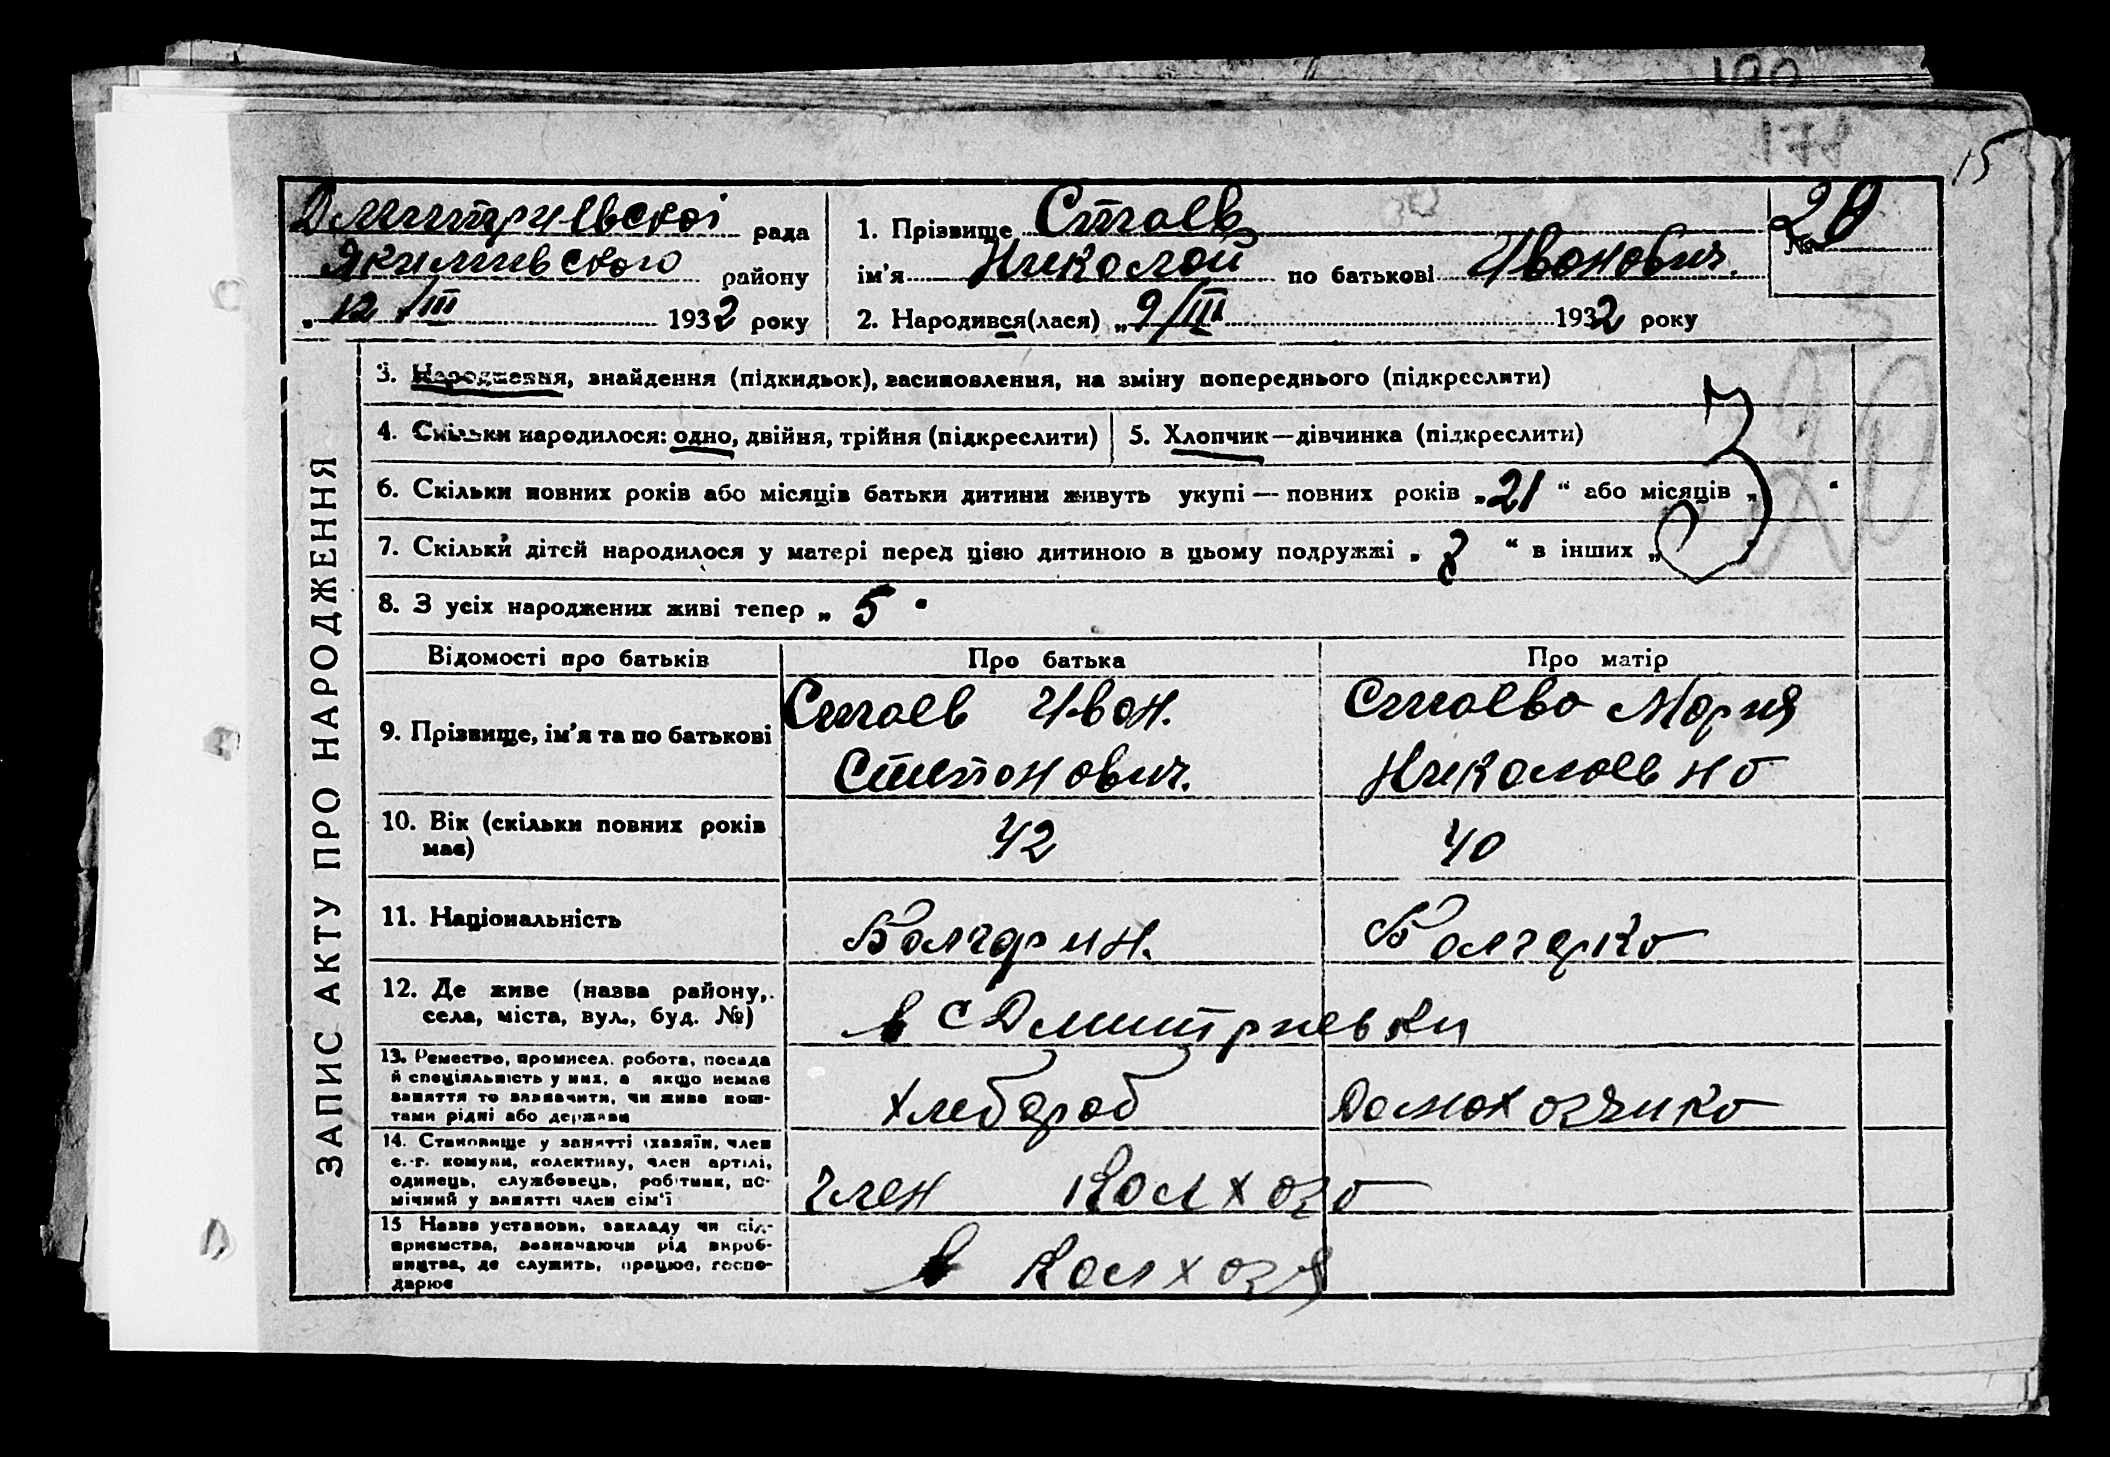 190
171
15
Дмитриевскоі рада
Якимивського району
„ 12 /III 1932 року
1. Прізвище Стаев
ім'я Николай по батькові Иванович.
№ 20
2. Народився(лася) „ 9/III 1932 року
ЗАПИС АКТУ ПРО НАРОДЖЕННЯ
3. Народження, знайдення (підкидьок), засиновлення, на зміну попереднього (підкреслити)
4. Скільки народилося: одно, двійня, трійня (підкреслити)
5. Хлопчик—дівчинка (підкреслити)
20
6. Скільки повних років або місяців батьки дитини живуть укупі — повних років „ 21 “ або місяців „ “
7. Скільки дітей народилося у матері перед цією дитиною в цьому подружжі „ “ в інших „
8. З усіх народжених живі тепер „ 5 “
Відомості про батьків Про батька Про матір
9. Прізвище, ім'я та по батькові
Стаев Иван. Стипонович.
Стаева Мария Николаевна
10. Вік (скільки повних років має)
42
40
11. Національність
Болгарин.
Болгарка
12. Де живе (назва району, села, міста, вул., буд. №)
в с Дмитриевки
13. Ремество, промисел. робота, посада
й спеціяльність у них, а якщо немає
заняття то зазначити, чи живе кош-
тами рідні або держави
хлебороб
Домохозяйка
14. Становище у занятті (хазяїн, член
с.-г. комуни, колективу, член артілі,
одинець, службовець, робітник, по-
мічний у занятті член сім'ї
член Колхоза
15 Назва установи, закладу чи під-
приємства, зазначаючи рід вироб-
ництва, де служить, працює, госпо-
дарює
в Колхозя